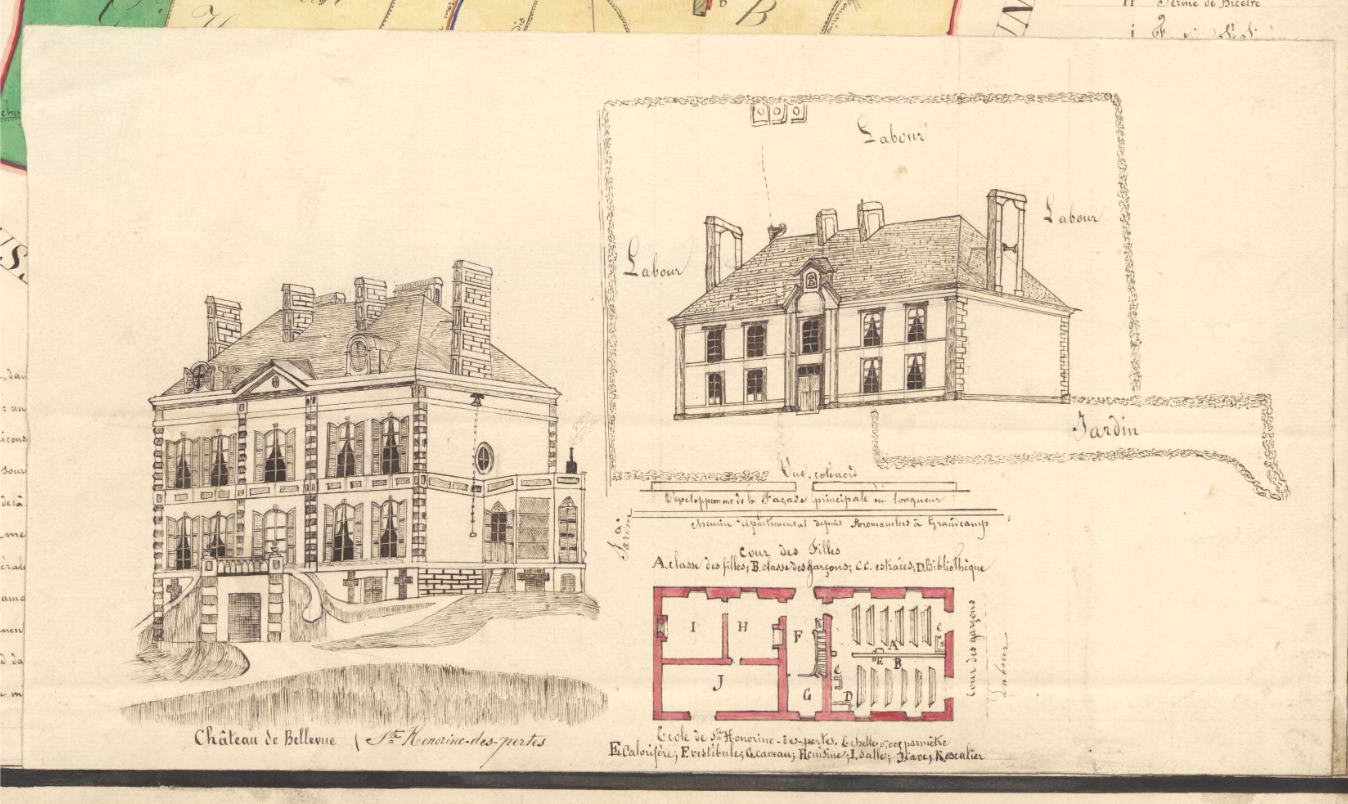 B
H Ferme de Bicêtre
i
Labour
Labour
Labour
Jardin
Vue, coté nord
Développement de la Façade principale en longueur
chemin départemental depuis Aromanches à Grandcamp
Jardin
Cour des Filles
A. classe des filles; B. classe des garçons; C.C. estrades; D. Bibliothèque
I H F A
E B
J G D
Cour des garçons
Labour
Ecole de Ste Honorine-des-pertes. Echelle 0,005 par mètre
E. Calorifère; F. vestibule; G. caveau; H. cuisine; I. salle; J. cave; K. escalier
Château de Bellevue ( Ste Honorine-des-pertes